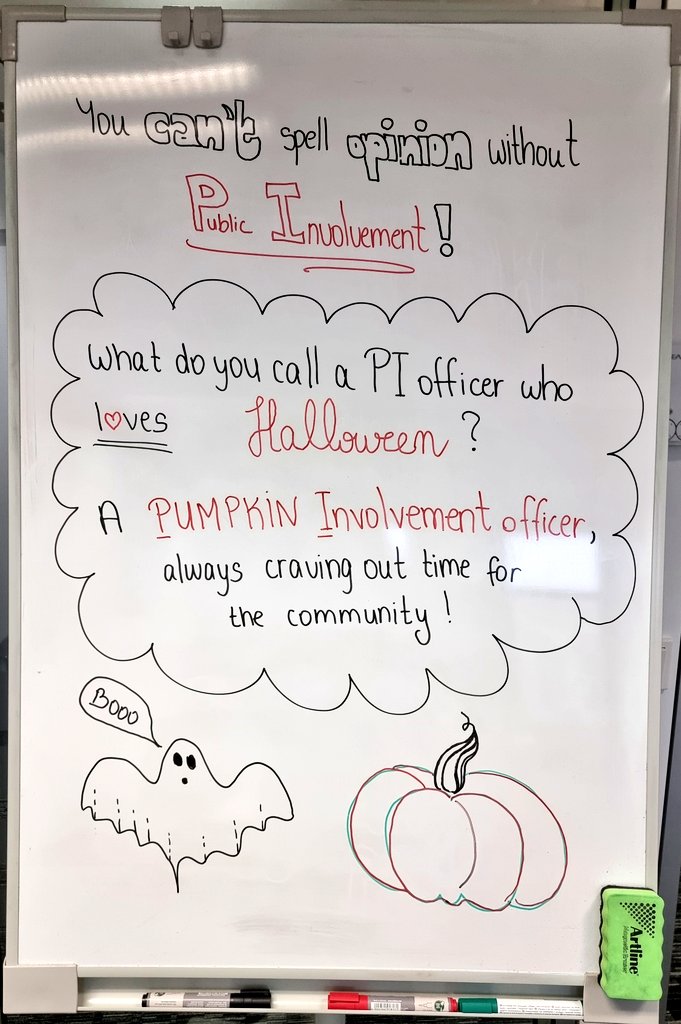 You can't spell opinion without
Public Involvement!
What do you call a PI officer who
loves Halloween?
A PUMPKIN Involvement officer,
always craving out time for
the community!
Booo
Artline